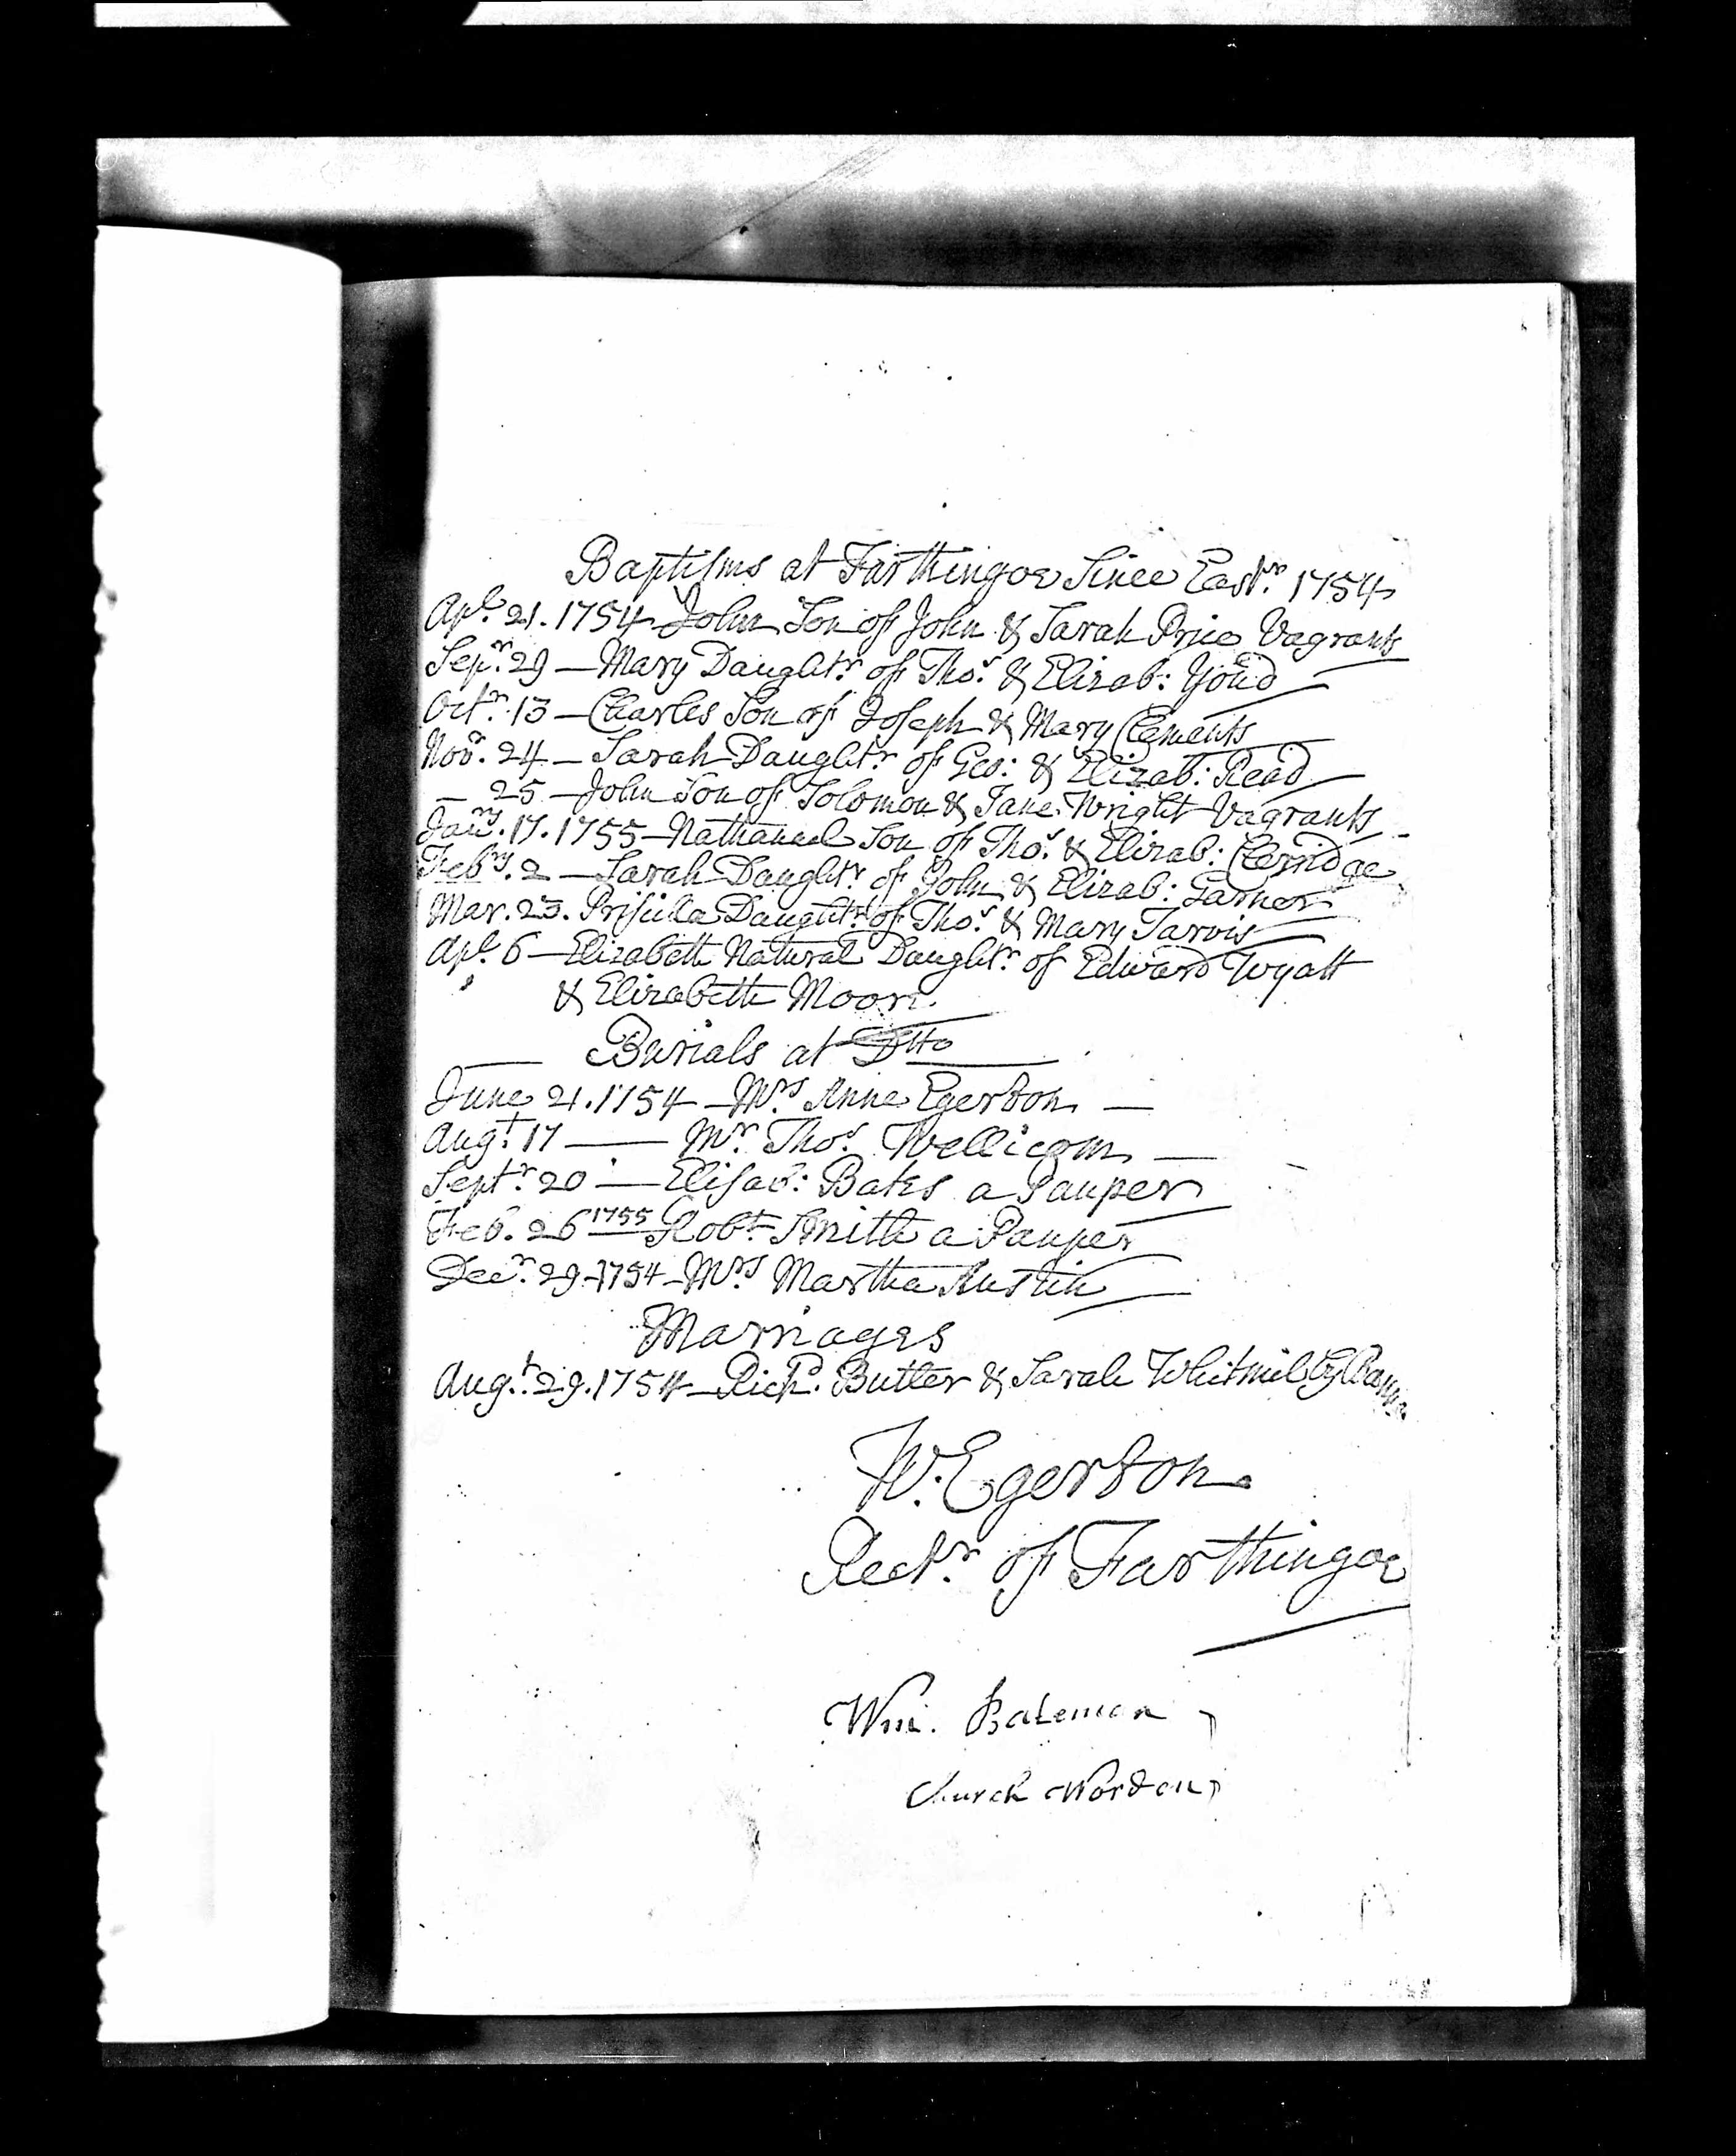 Baptisms at Farthingoe Since Eastr. 1754
Apl. 21. 1754 John Son of John & Sarah Price Vagrants
Sepr. 29 — Mary Daughtr. of Thos. & Elizab:
Octr. 13 — Charles Son of Joseph & Mary Clements
Novr. 24 — Sarah Daughtr. of Geo: & Elizab: Read
— 25 — John Son of Solomon & Jane Wright Vagrants
Janry. 17. 1755 — Nathanael Son of Thos. & Elizab: Cleridge
Febry. 2 — Sarah Daughtr. of John & Elizab: Garner
Mar. 23. Prisicila Daughtr. of Thos. & Mary Jarvis
Apl. 6 — Elizabeth Natural Daughtr. of Edward Wyatt
& Elizabeth Moon.
Burials at Dtto
June 21. 1754 — Mrs. Anne Egerton —
Augt. 17 — Mr. Thos. Wellicom —
Septr. 20 — Elisab: Bates a Pauper
Feb. 26 1755 Robt. Smith a Pauper
Decr. 29 1754 — Mrs. Martha Austin
Marriages
Augt. 29. 1754 — Richd. Butler & Sarah Whitmill by Banns
W. Egerton
Rectr. of Farthingoe
Wm. Bateman
Church Wardon